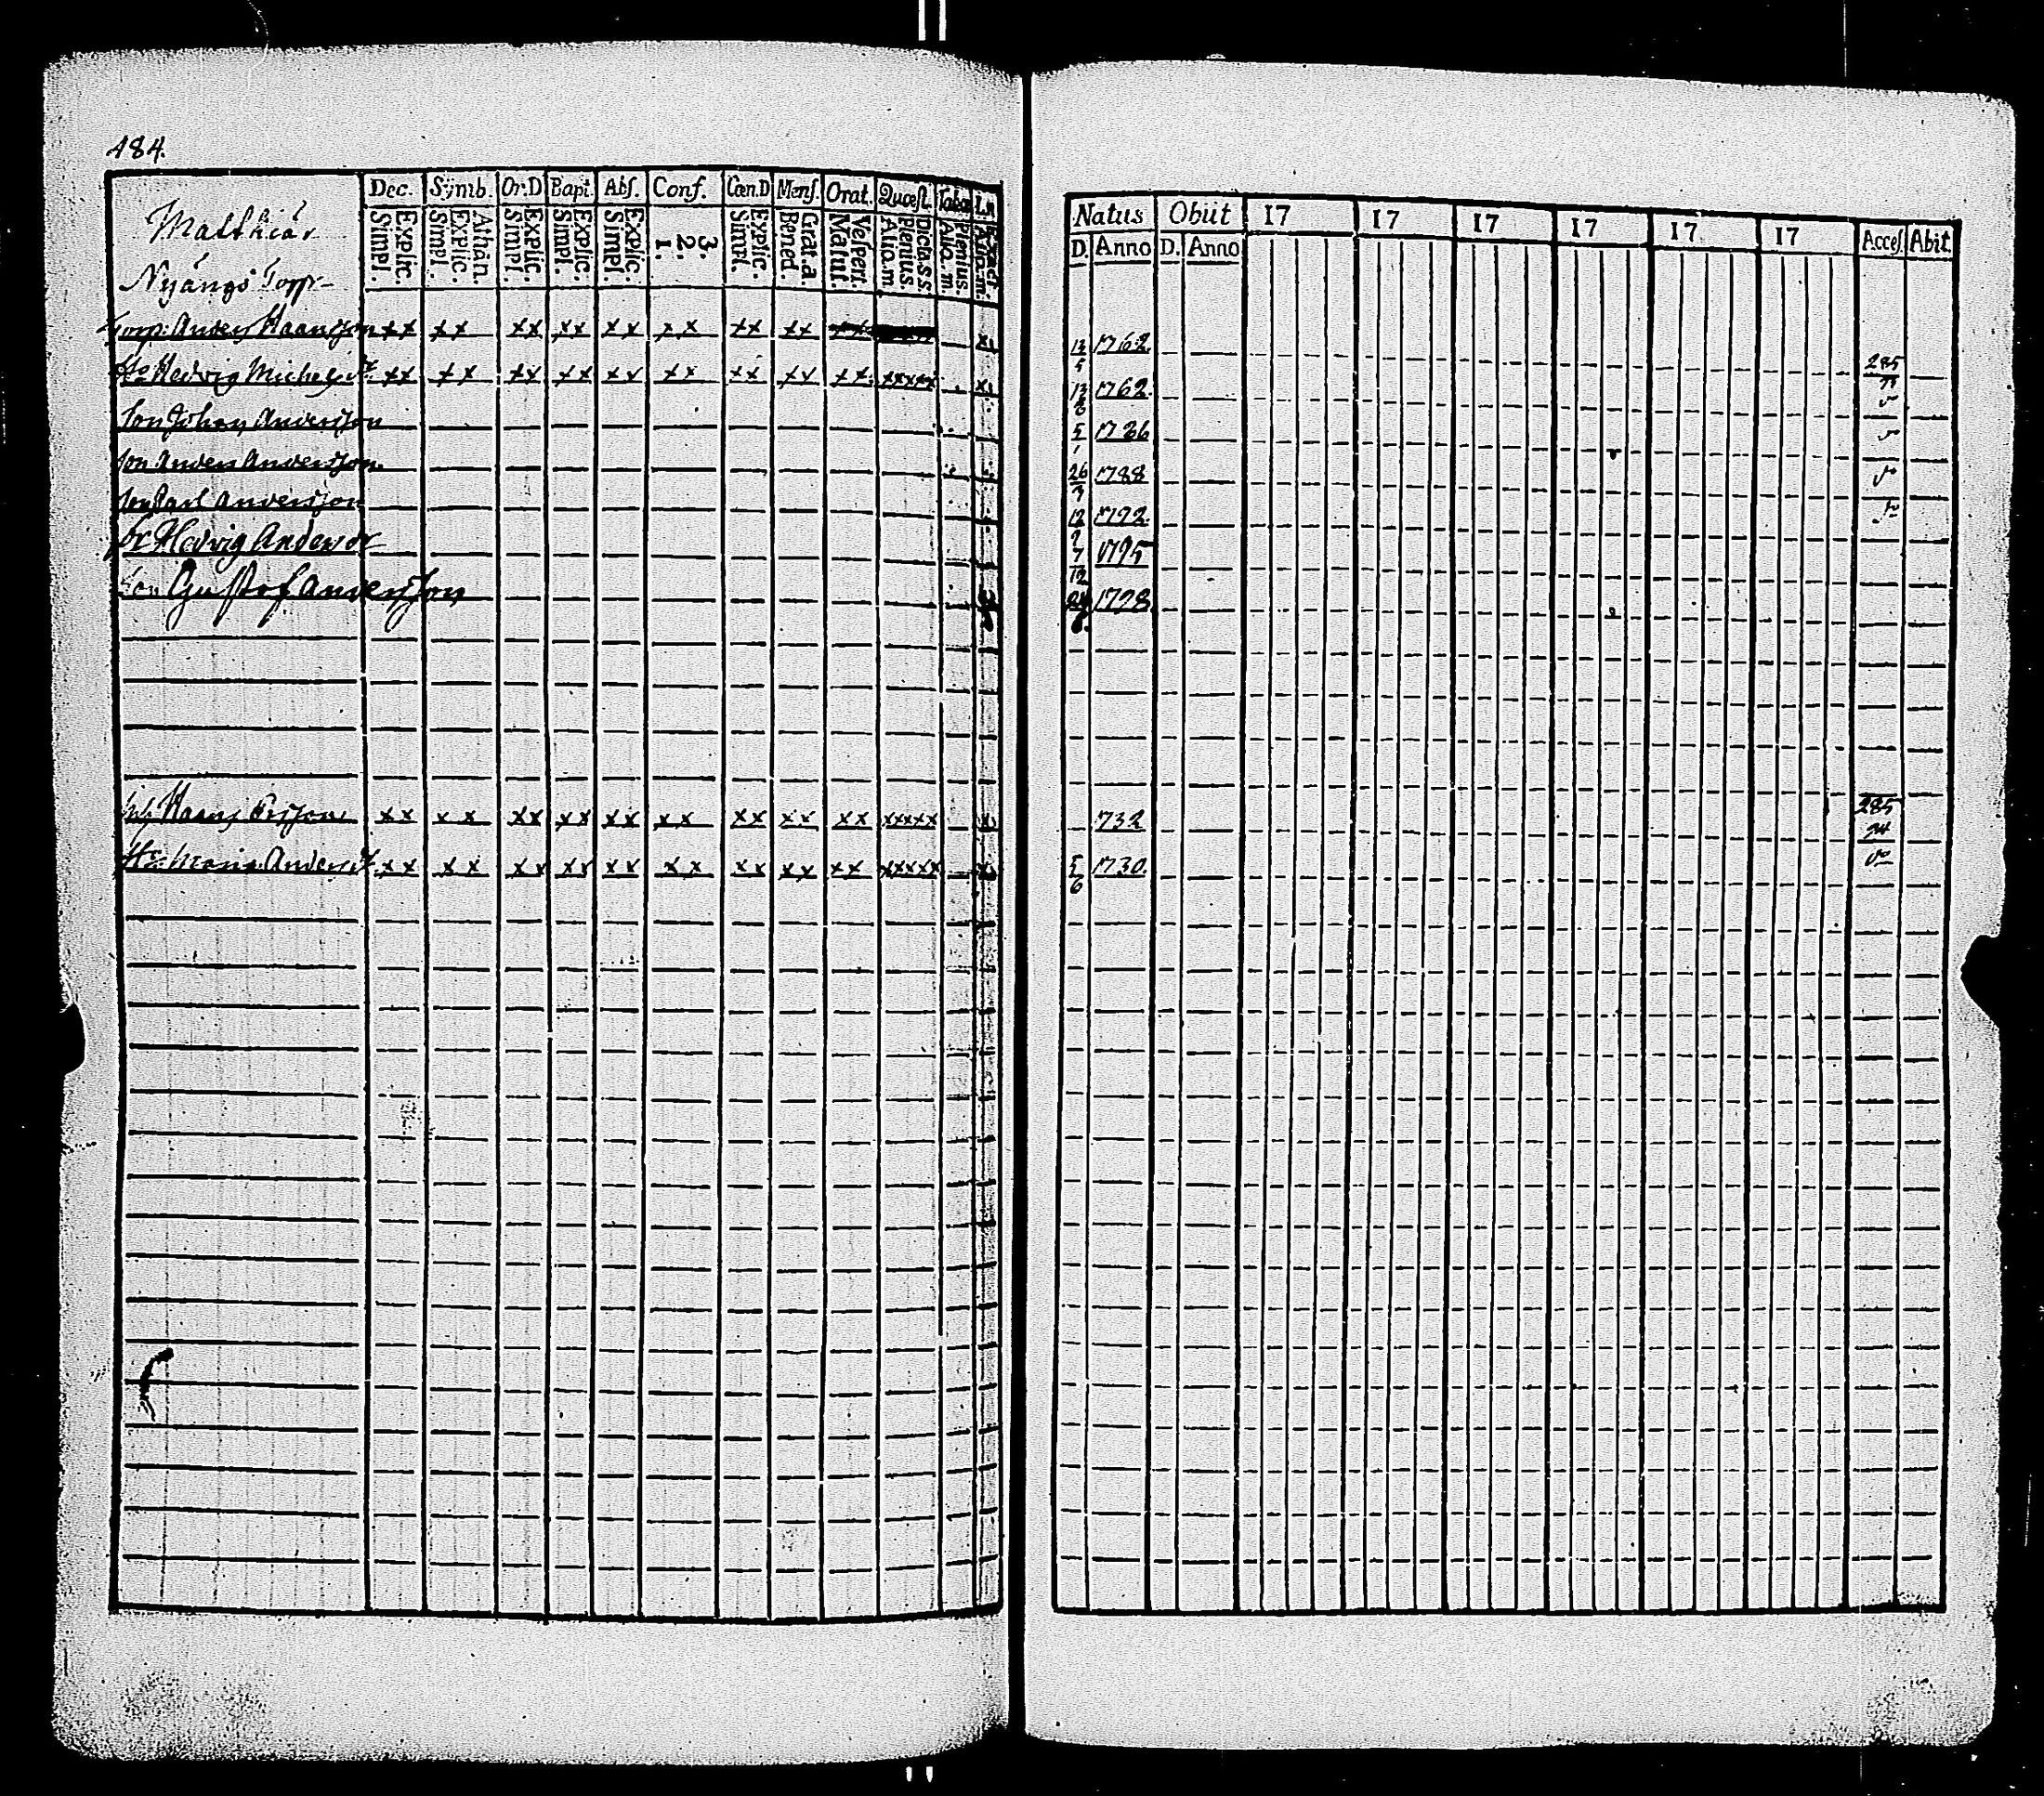 484.
Dec. Symb. Or.D Bapt. Abſ. Conf. Cœn.D Menſ. Orat. Quæſt. Taba
Explic. Simpl. Athan. Explic. Simpl. Explic. Simpl. Explic. Simpl. Explic. Simpl. 3. 2. 1. Explic. Simpl. Grat.a Bened. Veſpert. Matut. Dicta s.s. Plenius. Aliq.m Plenius. Aliq.m Exact. Aliq.m
Natus Obiit 17 17 17 17 17 17 Acceſ. Abit.
D. Anno D. Anno
Matthiæ
Nyängs Torp
Torp: Anders Haansson xx xx xx xx xx xx xx xx xx x 12/5 1762. 285
Hu Hedvig Michelsdr xx xx xx xx xx xx xx xx xx xxxxx x 1762.
Son Johan Andersson 5/1 1786
Son Anders Andersson 26 1788
Son Carl Andersson 12 1792.
Hedvig Andersdr 7/12 1795
Son Gustof Andersson 1798.
Haans Ersson xx xx xx xx xx xx xx xx xx xxxxx x 732 285
Hu Maria Andersdr xx xx xx xx xx xx xx xx xx xxxxx x 5/6 1730.